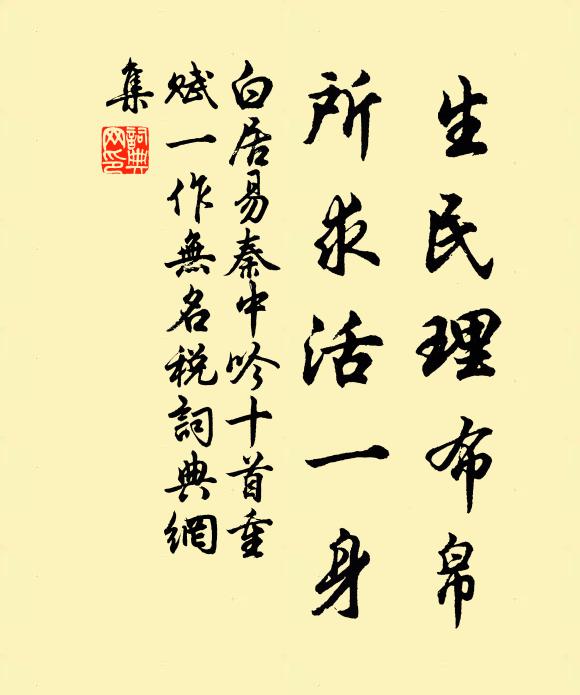 生民理布帛
所求活一身
白居易秦中吟十首重
赋一作無名税詞典網
集
詞典网印